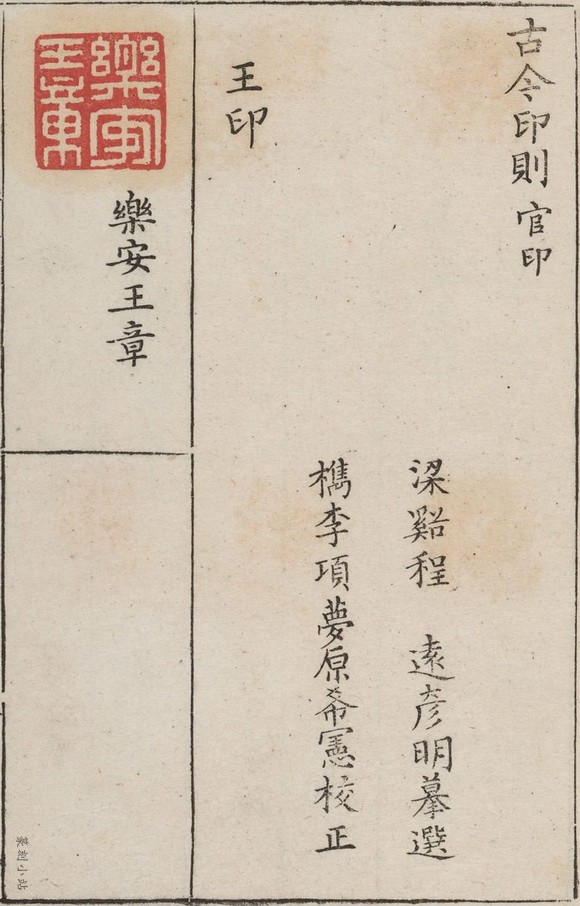 古今印則 官印
梁谿程 遠彥明摹選
檇李項夢原希憲校正
王印
樂安
王章
樂安王章
篆刻小站